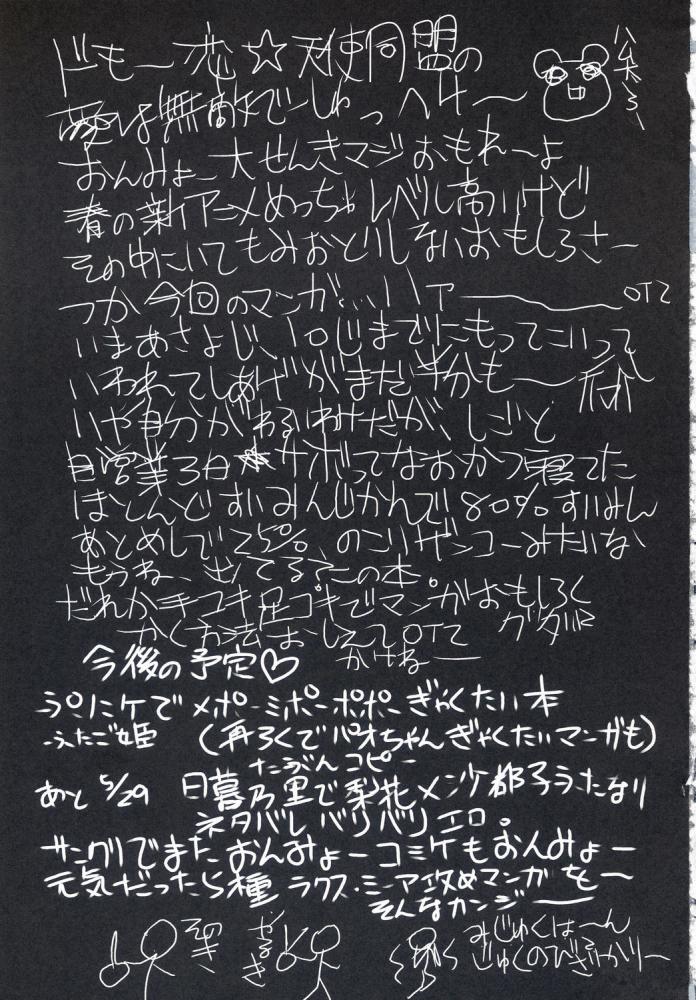 ドもー恋☆天使同盟の
愛は無敵でしゅっ へけ〜
おんみょー大せんきマジおもれーよ
春の新アニメめっちゃレベル高いけど
その中にいてもみおとりしないおもしろさー
つか今回のマンガ…ハァ――――OTZ
いまあさ 10じまでにもってこいって
いわれてしあげがまだ半分も――
いや自分がわるいわけだが、しごと
自営業3日 サボってなおかつ寝てた
ほとんどすいみんじかんで80%すいみん
あとめしで25% のこりザンコーみたいな
もうね、出てる?この本。
だれか手コキ足コキでマンガおもしろく
かく方法おしえてOTZ
かけねー
グダル
今後の予定♡
ぷにケでメポーミポーポポーぎゃくたい本
ふたご姫 (再ろくでパオちゃんぎゃくたいマンガも)
たぶんコピー
あと 5/29 日暮乃里で梨花 メンケ都子うたなり
ネタバレバリバリエロ。
サングリでまたおんみょーコミケもおんみょー
元気だったら種 ラクス・ミーア攻めマンガを〜
そんなカンジ――
そのき
やるき
みじゅくはーん
じゅくのびざかりー